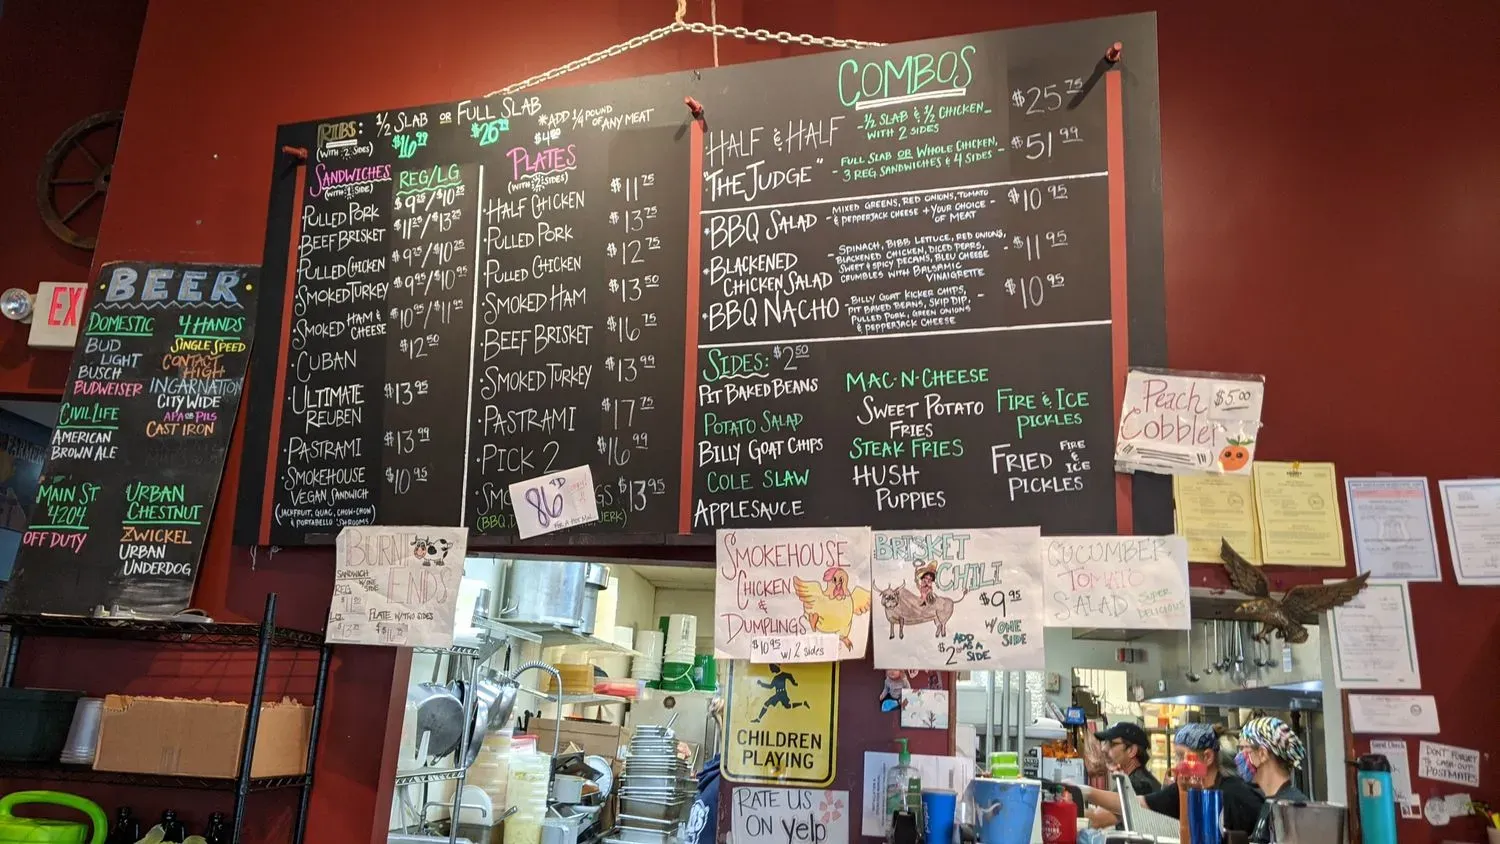 EX
BEER
DOMESTIC
BUD
LIGHT
BUSCH
BUDWEISER
CIVIL LIFE
AMERICAN
BROWN ALE
MAIN ST.
4204
OFF DUTY
4 HANDS
SINGLE SPEED
CONTACT
HIGH
INCARNATION
CITY WIDE
APA OR PILS
CAST IRON
URBAN
CHESTNUT
ZWICKEL
URBAN
UNDERDOG
RIBS: 1/2 SLAB OR FULL SLAB
(WITH 2 SIDES) $16.99 $26.99
*ADD 1/4 POUND
OF ANY MEAT
SANDWICHES REG/LG
SIDE)
·PULLED PORK $9.25/$10.25
·BEEF BRISKET $11.25/$13.25
·PULLED CHICKEN $9.25/$10.25
·SMOKED TURKEY $9.95/$10.95
·SMOKED HAM &
CHEESE $10.95/$11.95
·CUBAN $12.50
·ULTIMATE
REUBEN $13.95
·PASTRAMI $13.99
·SMOKEHOUSE
VEGAN SANDWICH $10.95
(JACKFRUIT, GUAC, CHOW-CHOW
& PORTABELLO SHROOMS)
PLATES
SIDES)
·HALF CHICKEN $11.75
·PULLED PORK $13.75
·PULLED CHICKEN $12.75
·SMOKED HAM $13.50
·BEEF BRISKET $16.75
·SMOKED TURKEY $13.99
·PASTRAMI $17.75
·PICK 2 $16.99
$13.95
86'D
COMBOS
·HALF & HALF - 1/2 SLAB & 1/2 CHICKEN - $25.75
WITH 2 SIDES
"THE JUDGE" - FULL SLAB OR WHOLE CHICKEN, $51.99
3 REG SANDWICHES & 4 SIDES -
·BBQ SALAD - MIXED GREENS, RED ONIONS, TOMATO $10.95
& PEPPERJACK CHEESE + YOUR CHOICE -
OF MEAT
·BLACKENED
CHICKEN SALAD - SPINACH, BIBB LETTUCE, RED ONIONS, $11.95
BLACKENED CHICKEN, DICED PEARS,
SWEET & SPICY PECANS, BLEU CHEESE
CRUMBLES WITH BALSAMIC
VINAIGRETTE
·BBQ NACHO - BILLY GOAT KICKER CHIPS, - $10.95
PIT BAKED BEANS, SKIP DIP,
PULLED PORK, GREEN ONIONS
& PEPPERJACK CHEESE
SIDES: $2.50
PIT BAKED BEANS
POTATO SALAD
BILLY GOAT CHIPS
COLE SLAW
APPLESAUCE
MAC-N-CHEESE
SWEET POTATO
FRIES
STEAK FRIES
HUSH
PUPPIES
FIRE & ICE
PICKLES
FRIED FIRE & ICE
PICKLES
Peach $5.00
Cobbler
BURNT
ENDS
SANDWICH
W/ONE
SIDE
REG
PLATE W/TWO SIDES
SMOKEHOUSE
CHICKEN
&
DUMPLINGS
$10.95 w/ 2 sides
BRISKET
CHILI
$9.95
W/ ONE
SIDE
ADD
AS A
SIDE
CUCUMBER
TOMATO
SALAD SUPER
DELICIOUS
CHILDREN
PLAYING
RATE US
ON yelp
DON'T FORGET
TO CASH-OUT
POSTMATES